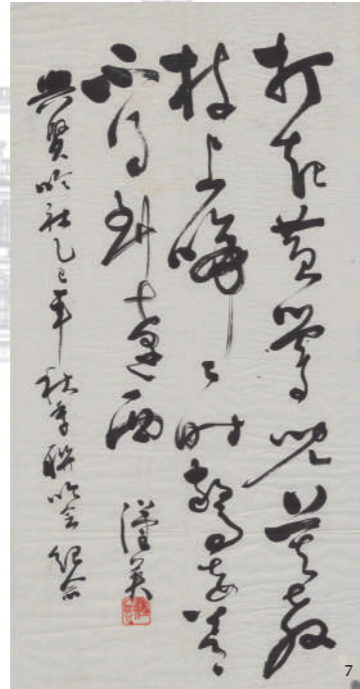 打起黃鶯兒莫教
枝上啼〻時驚妾夢
不得到遼西
興賢吟社乙巳年秋季聯吟會紀念
7